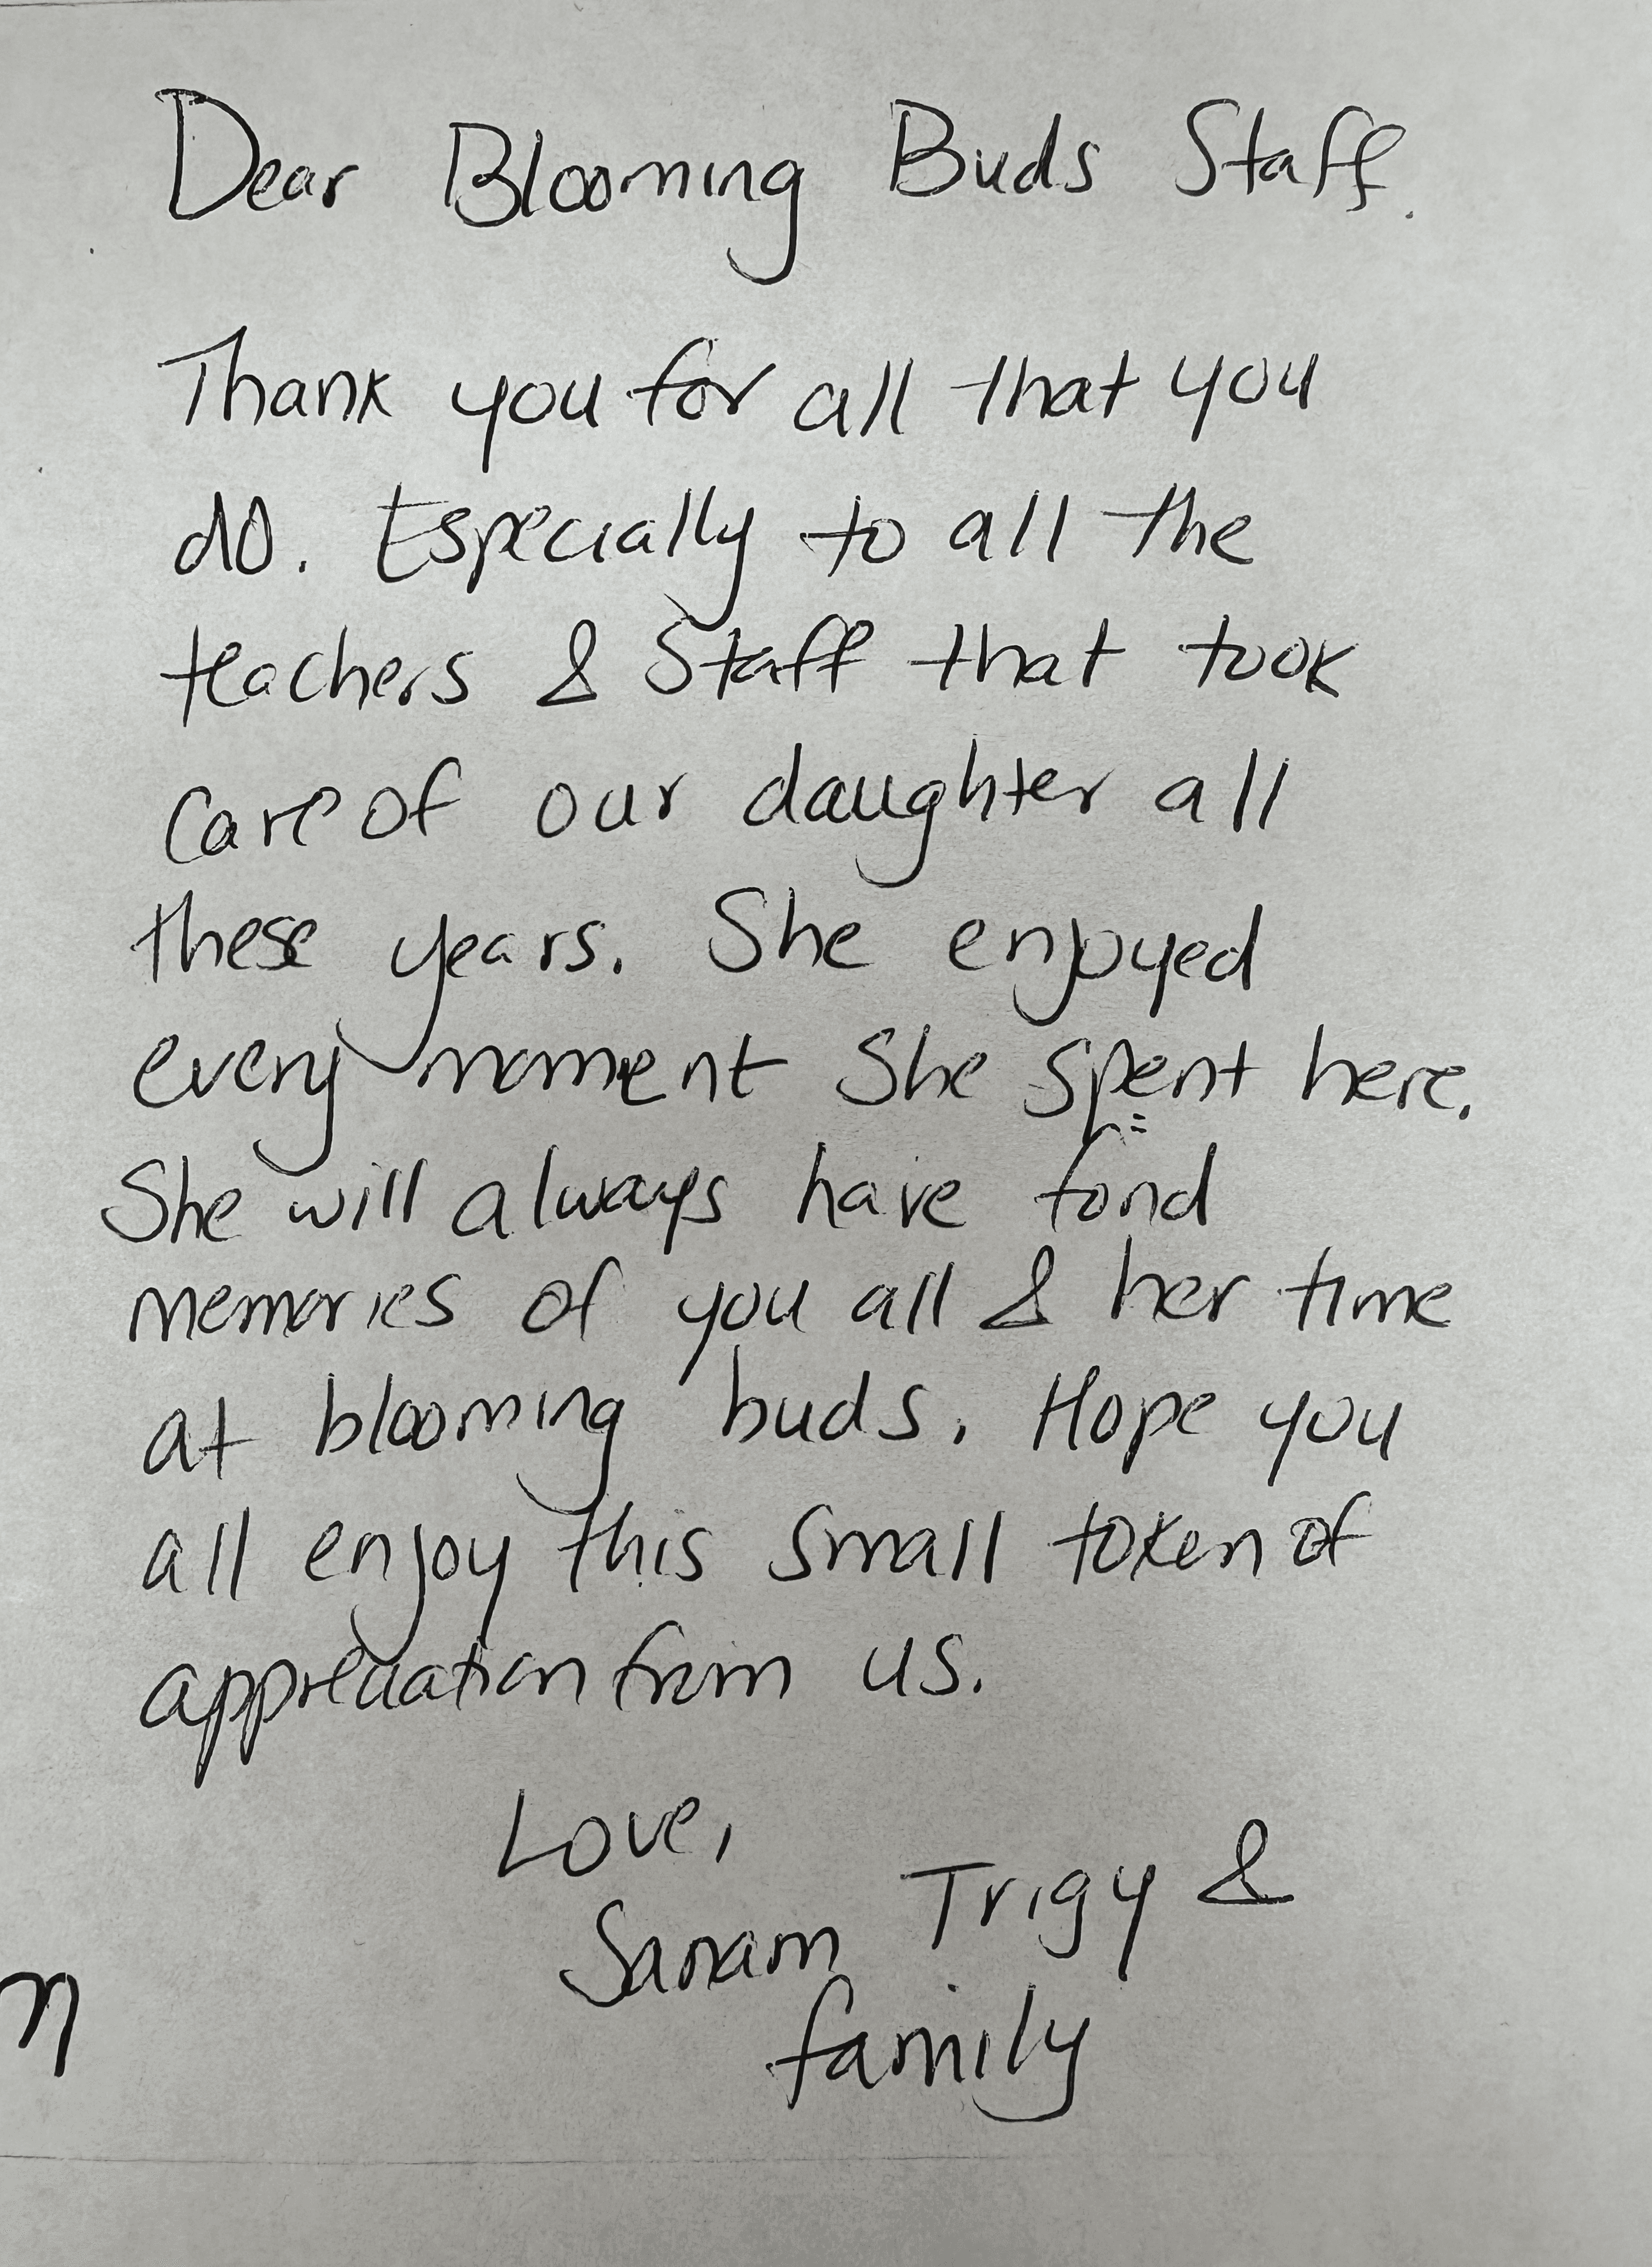 Dear Blooming Buds Staff.
Thank you for all that you
do. Especially to all the
teachers & Staff that took
care of our daughter all
these years. She enjoyed
every moment She spent here.
She will always have fond
memories of you all & her time
at blooming buds. Hope you
all enjoy this small token of
appreciation from us.
Love,
Sanam Trigy &
family